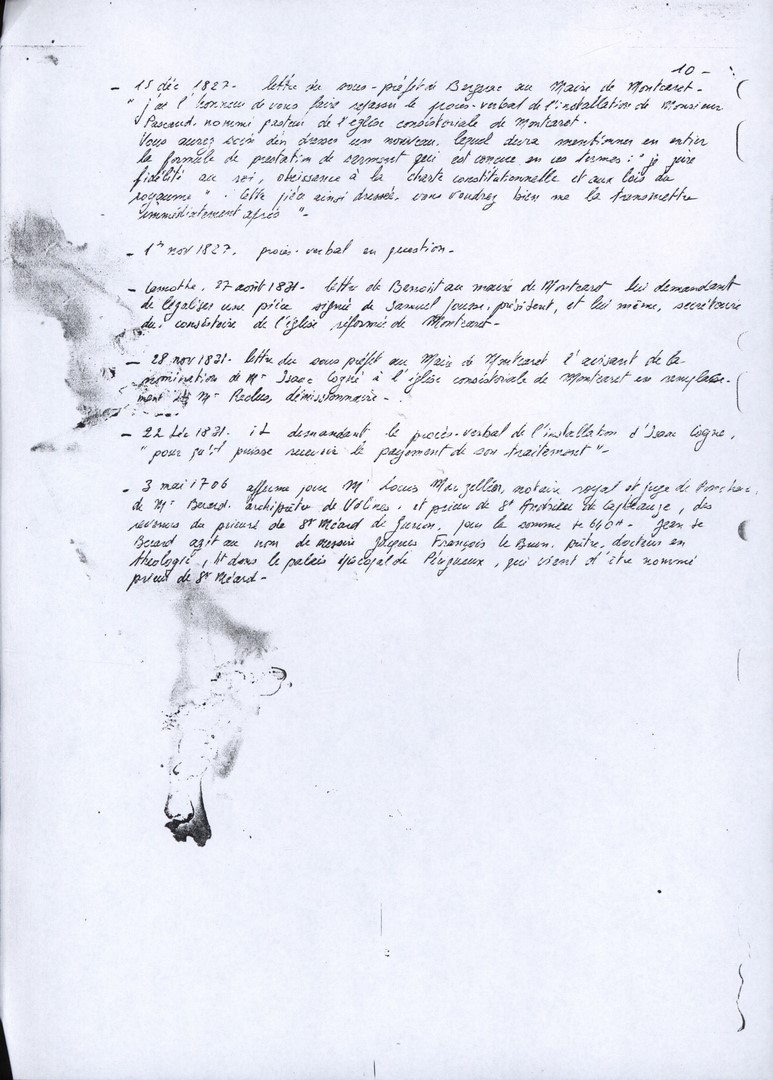 10 -
- 15 déc 1827. lettre du sous-préfet de Bergerac au Maire de Montcaret -
" j'ai l'honneur de vous faire repasser le procès-verbal de l'installation de Monsieur
Pascaud, nommé pasteur de l'église consistoriale de Montcaret.
Vous aurez soin d'en dresser un nouveau, lequel devra mentionner en entier
la formule de prestation de serment qui est conçue en ces termes : " je jure
fidélité au roi, obéissance à la charte constitutionnelle et aux lois du
royaume ". Cette pièce ainsi dressée, vous voudrez bien me la transmettre
immédiatement après " -
- 1er nov 1827. procès-verbal en question -
- Lamothe, 27 août 1831 - lettre de Benoit au maire de Montcaret lui demandant
de légaliser une pièce signée de Samuel président, et lui même, secrétaire
du consistoire de l'église réformée de Montcaret -
- 28 nov 1831. lettre du sous préfet au Maire de Montcaret l'avisant de la
nomination de Mr Isaac Cogné à l'église consistoriale de Montcaret en remplace-
ment de Mr Reclus, démissionnaire -
- 22 déc 1831. id demandant le procès-verbal de l'installation d'Isaac Cogné,
" pour qu'il puisse recevoir le payement de son traitement " -
- 3 mai 1706 afferme pour Mr Louis notaire royal et juge de
de Mr Berard, archiprêtre de Vélines, et prieur de St des
revenus du prieuré de St Méard de Gurson, pour la somme de 640# - Jean de
Berard agit au nom de messire Jacques François le Brun, prêtre, docteur en
théologie, ht dans le palais épiscopal de Périgueux, qui vient d'être nommé
prieur de St Méard -